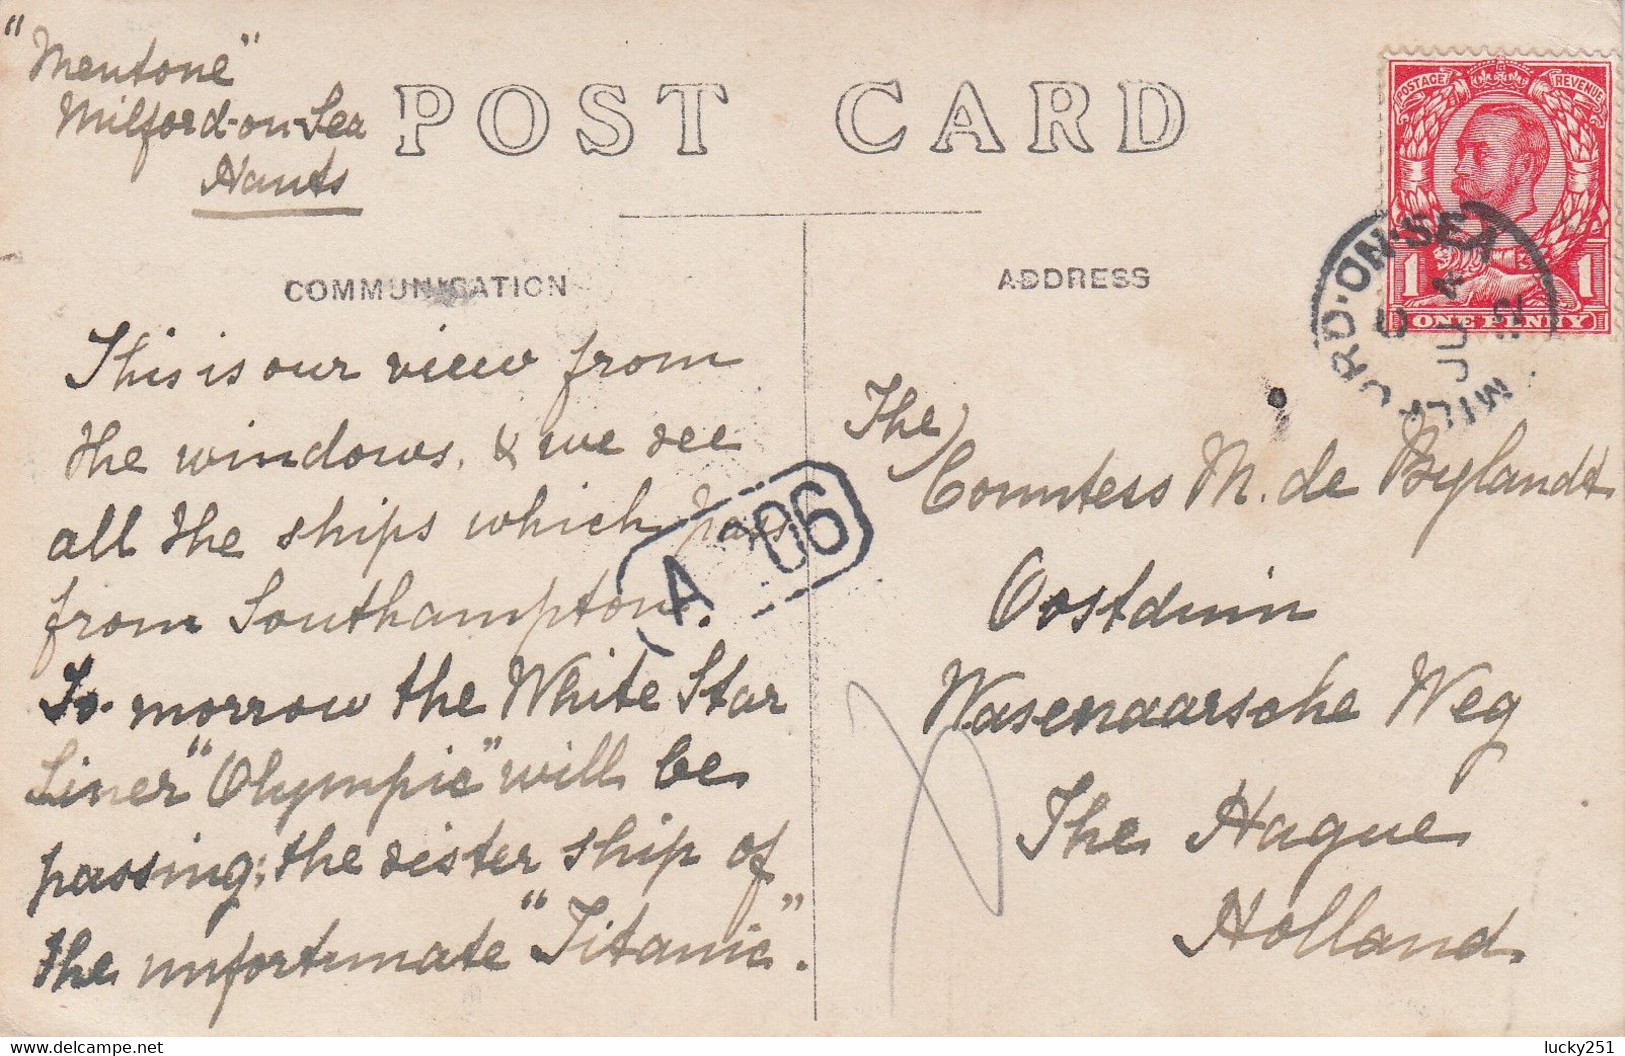 "Mentone"
Milford-on-Sea
Hants
POST CARD
COMMUNICATION
This is our view from
the windows, & we see
all the ships which pass
from Southampton.
To-morrow the White Star
Liner "Olympic" will be
passing; the sister ship of
the unfortunate "Titanic".
A 06
ADDRESS
POSTAGE REVENUE
1 1
ONE PENNY
MILFORD-ON-SEA
JU 4
12
The
Countess M. de Bylandt
Oostduin
Wasenaarsche Weg
The Hague
Holland
lucky251